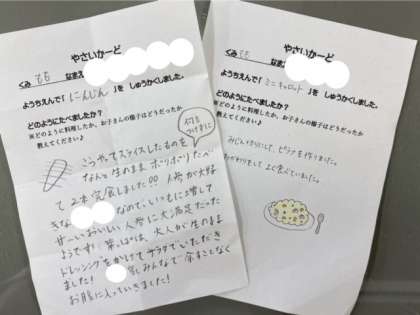 やさいかーど
くみ もも なまえ
ようちえんで「にんじん」を しゅうかくしました。
どのようにたべましたか?
※どのように料理したか、お子さんの様子はどうだったか
教えてください♪
何も
つけずに
こうやってスライスしたものを
なんと生のまま ポリポリたべ
て 2本完食しました!! 人参が大好
きな なので、いつもに増して
甘〜いおいしい人参に大満足だった
ようです! 葉っぱは、大人が生のまま
ドレッシングをかけてサラダでいただき
ました! みんなで余すことなく
お腹に入っていきました!
やさいかーど
くみ もも なまえ
ようちえんで「ミニキャロット」を しゅうかくしました。
どのようにたべましたか?
※どのように料理したか、お子さんの様子はどうだったか
教えてください♪
みじん切りにして、ピラフを作りました。
おかわりをして よく食べていました。